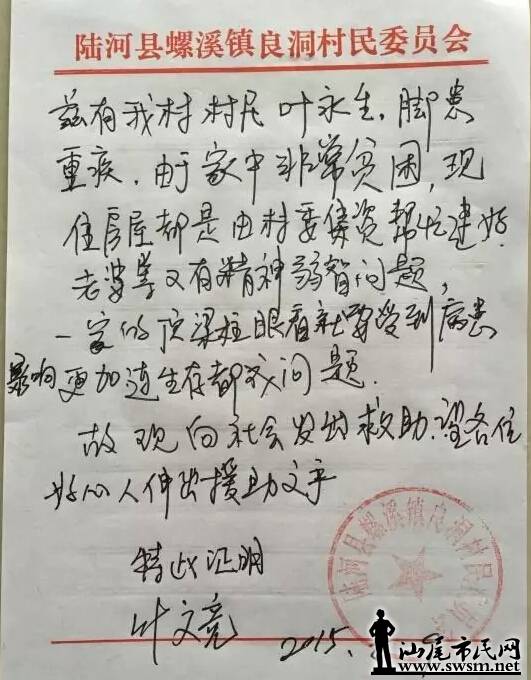 陆河县螺溪镇良洞村民委员会
兹有我村村民叶永生，脚患
重疾，由于家中非常贫困，现
住房屋都是由村委集资帮忙建好
老婆又有精神弱智问题，
一家的顶梁柱眼看就要受到病患
影响更加连生存都成问题.
故现向社会发出救助，望各位
好心人伸出援助之手
特此证明
叶文亮
2015.
陆河县螺溪镇良洞村民委员会
汕尾市民网
www.swsm.net